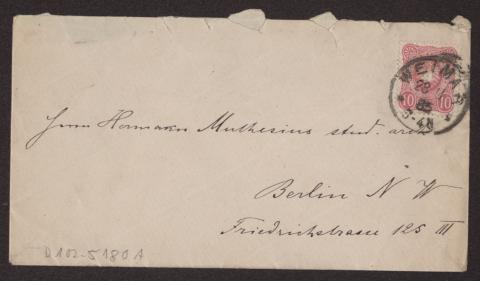 WEIMAR
28
85
3-4N
10 10
Herrn Hermann Muthesius stud. arch.
Berlin N W
Friedrichstrasse 125 III
D102-5180A